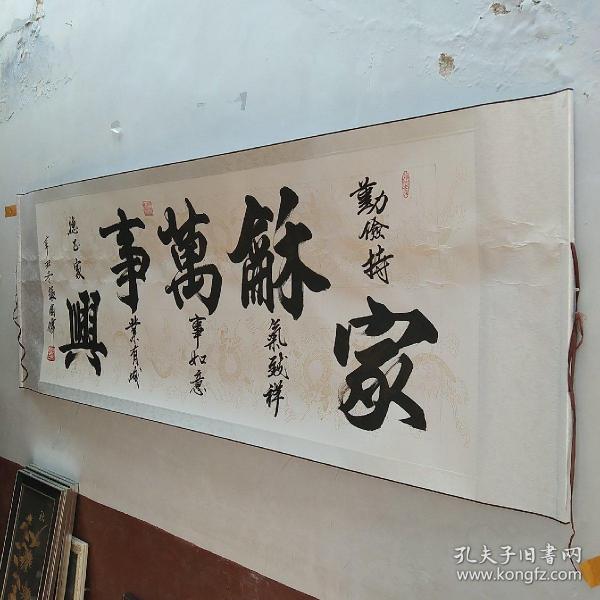 勤儉持家
龢氣致祥
萬事如意
事業有成
德家興
辛丑冬
孔夫子旧书网
www.kongfz.com